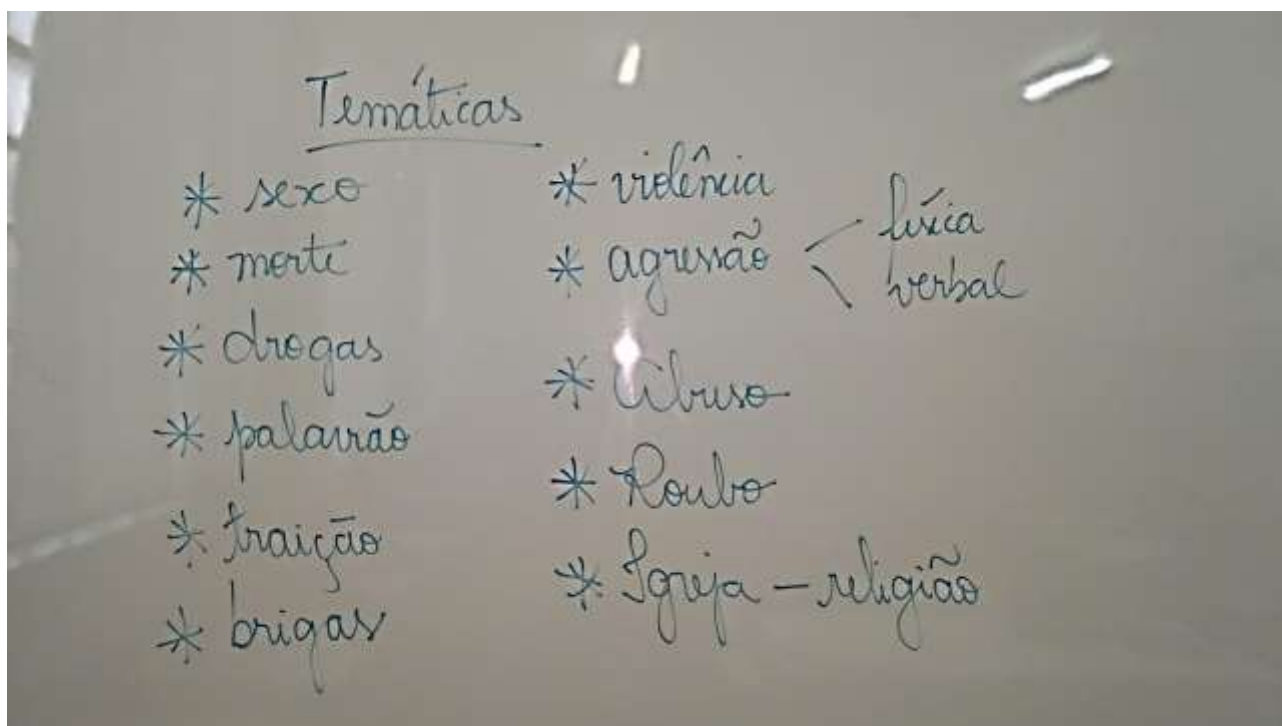 Temáticas
* sexo
* morte
* drogas
* palavrão
* traição
* brigas
* violência
* agressão < física
verbal
* Abuso
* Roubo
* Igreja – religião